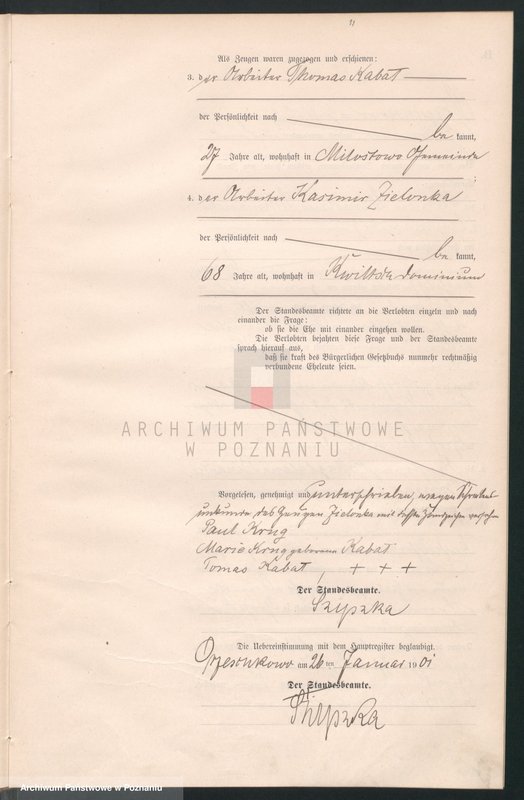 Als Zeugen waren zugezogen und erschienen:
3. der Arbeiter Thomas Kabat
der Persönlichkeit nach
be kannt,
27 Jahre alt, wohnhaft in Milostowo Gemeinde
4. der Arbeiter Kasimir Zielonka
der Persönlichkeit nach
be kannt,
68 Jahre alt, wohnhaft in Kwiltsch dominium
Der Standesbeamte richtete an die Verlobten einzeln und nach
einander die Frage:
ob sie die Ehe mit einander eingehen wollen.
Die Verlobten bejahten diese Frage und der Standesbeamte
sprach hierauf aus,
daß sie kraft des Bürgerlichen Gesetzbuchs nunmehr rechtmäßig
verbundene Eheleute seien.
ARCHIWUM PAŃSTWOWE
W POZNANIU
Vorgelesen, genehmigt und unterschrieben, wegen Schreibens
unkunde des Zeugen Zielonka mit Handzeichen versehen
Paul Krug
Marie Krug geborene Kabat
Tomas Kabat, + + +
Der Standesbeamte.
Szypska
Die Uebereinstimmung mit dem Hauptregister beglaubigt.
am 26 ten Januar 1901
Der Standesbeamte.
Szypska
Archiwum Państwowe w Poznaniu